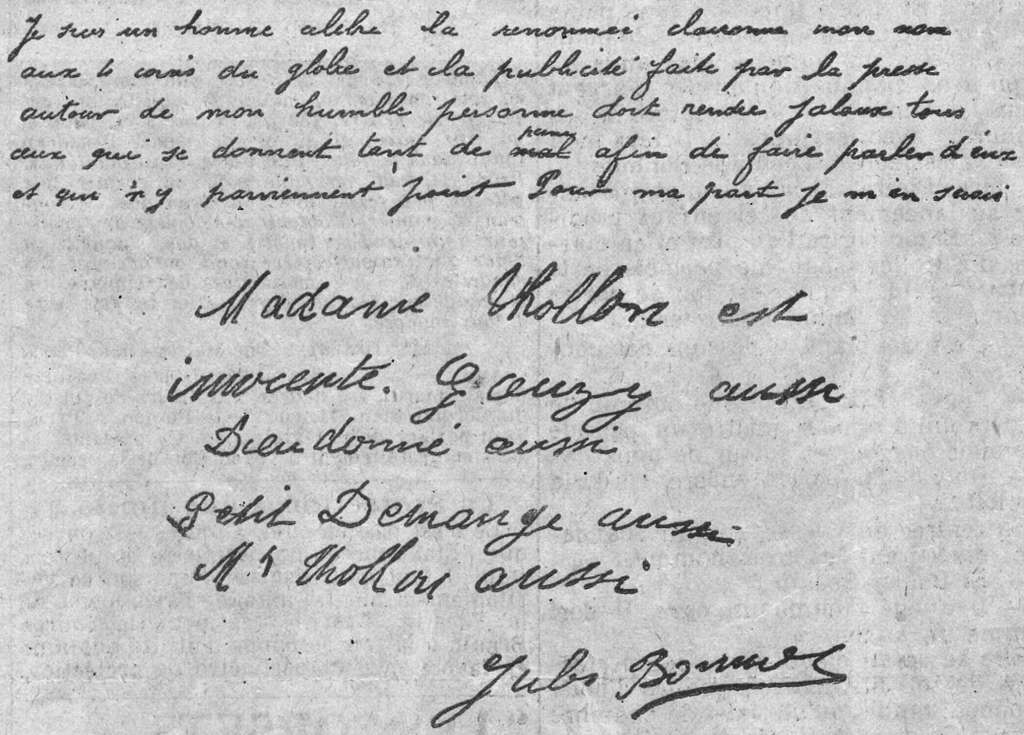 Je suis un homme célèbre la renommée claironne mon nom
aux 4 coins du globe et la publicité faite par la presse
autour de mon humble personne doit rendre jaloux tous
ceux qui se donnent tant de mal peine afin de faire parler d'eux
et qui n'y parviennent point Pour ma part je m'en serais
Madame Thollon est
innocente. Gauzy aussi
Dieudonné aussi
Petit Demange aussi
Mr Thollon aussi
Jules Bonnot